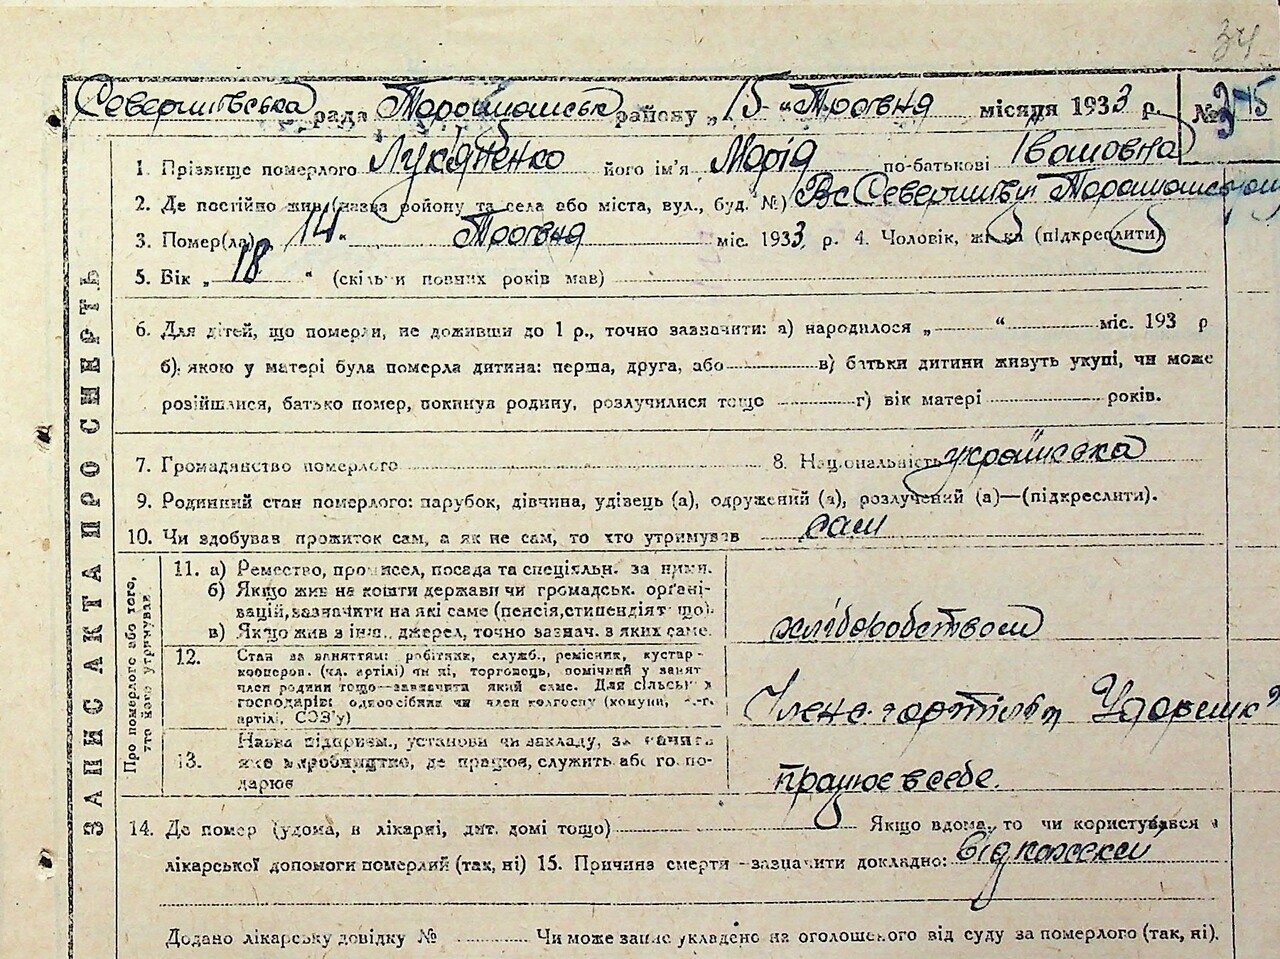 34
Северинівська рада Таращанськ району „15 “ Травня місяця 1933 р. № 345
1. Прізвище померлого Лук'яненко його ім'я Марія по-батькові Івановна
2. Де постійно жив (назва району та села або міста, вул., буд. №) Вс Северинівці Таращанськом
3. Помер(ла) „ 14 “ Травня міс. 1933 р. 4. Чоловік, жінка (підкреслити)
5. Вік „ 18 “ (скільки повних років мав)
6. Для дітей, що померли, не доживши до 1 р., точно зазначити: а) народилося „ “ міс. 193 р
б) якою у матері була померла дитина: перша, друга, або в) батьки дитини живуть укупі, чи може
розійшлися, батько помер, покинув родину, розлучилися тощо г) вік матері років.
7. Громадянство померлого 8. Національність українська
9. Родинний стан померлого: парубок, дівчина, удівець (а), одружений (а), розлучений (а)—(підкреслити).
10. Чи здобував прожиток сам, а як не сам, то хто утримував сам
ЗАПИС АКТА ПРО СМЕРТЬ
Про померлого або того, хто його утримував
11. а) Ремество, промисел, посада та спеціяльн. за ними.
б) Якщо жив на кошти держави чи громадськ. органі-
зацій, зазначити на які саме (пенсія, стипендія т що).
в) Якщо жив з інш. джерел, точно зазнач. з яких саме.
хліборобством
12. Стан за заняттям: робітник, служб., ремісник, кустар-
кооперов. (чл. артілі) чи ні, торговець, помічний у занят.
член родини тощо—зазначити який саме. Для сільськ х
господарів: одноосібник чи член колгоспу (комуни, с.-г.
артілі, СОЗ'у)
Член с-г артілі Ударник
13. Назва підприєм., установи чи закладу, за зазнач.
яке виробництво, де працює, служить або го по-
дарює
працює в себе.
14. Де помер (удома, в лікарні, дит. домі тощо) Якщо вдома, то чи користувався
лікарської допомоги померлий (так, ні) 15. Причина смерти - зазначити докладно: від
Додано лікарську довідку № Чи може запис укладено на оголошеного від суду за померлого (так, ні).